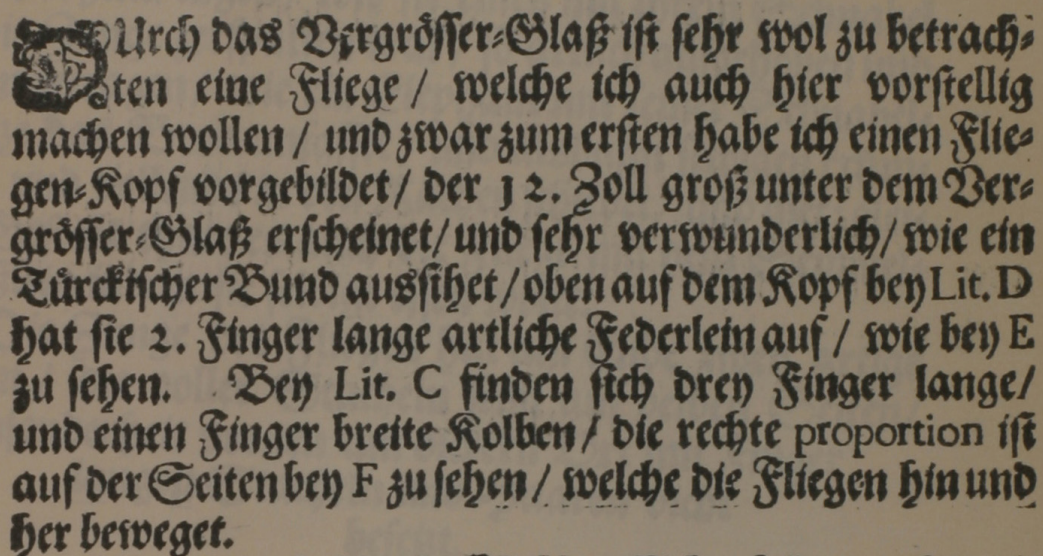 DUrch das Vergrösser-Glaß ist sehr wol zu betrach-
ten eine Fliege / welche ich auch hier vorstellig
machen wollen / und zwar zum ersten habe ich einen Flie-
gen-Kopf vorgebildet / der 12. Zoll groß unter dem Ver-
grösser-Glaß erscheinet / und sehr verwunderlich / wie ein
Türckischer Bund aussihet / oben auf dem Kopf bey Lit. D
hat sie 2. Finger lange artliche Federlein auf / wie bey E
zu sehen. Bey Lit. C finden sich drey Finger lange /
und einen Finger breite Kolben / die rechte proportion ist
auf der Seiten bey F zu sehen / welche die Fliegen hin und
her beweget.